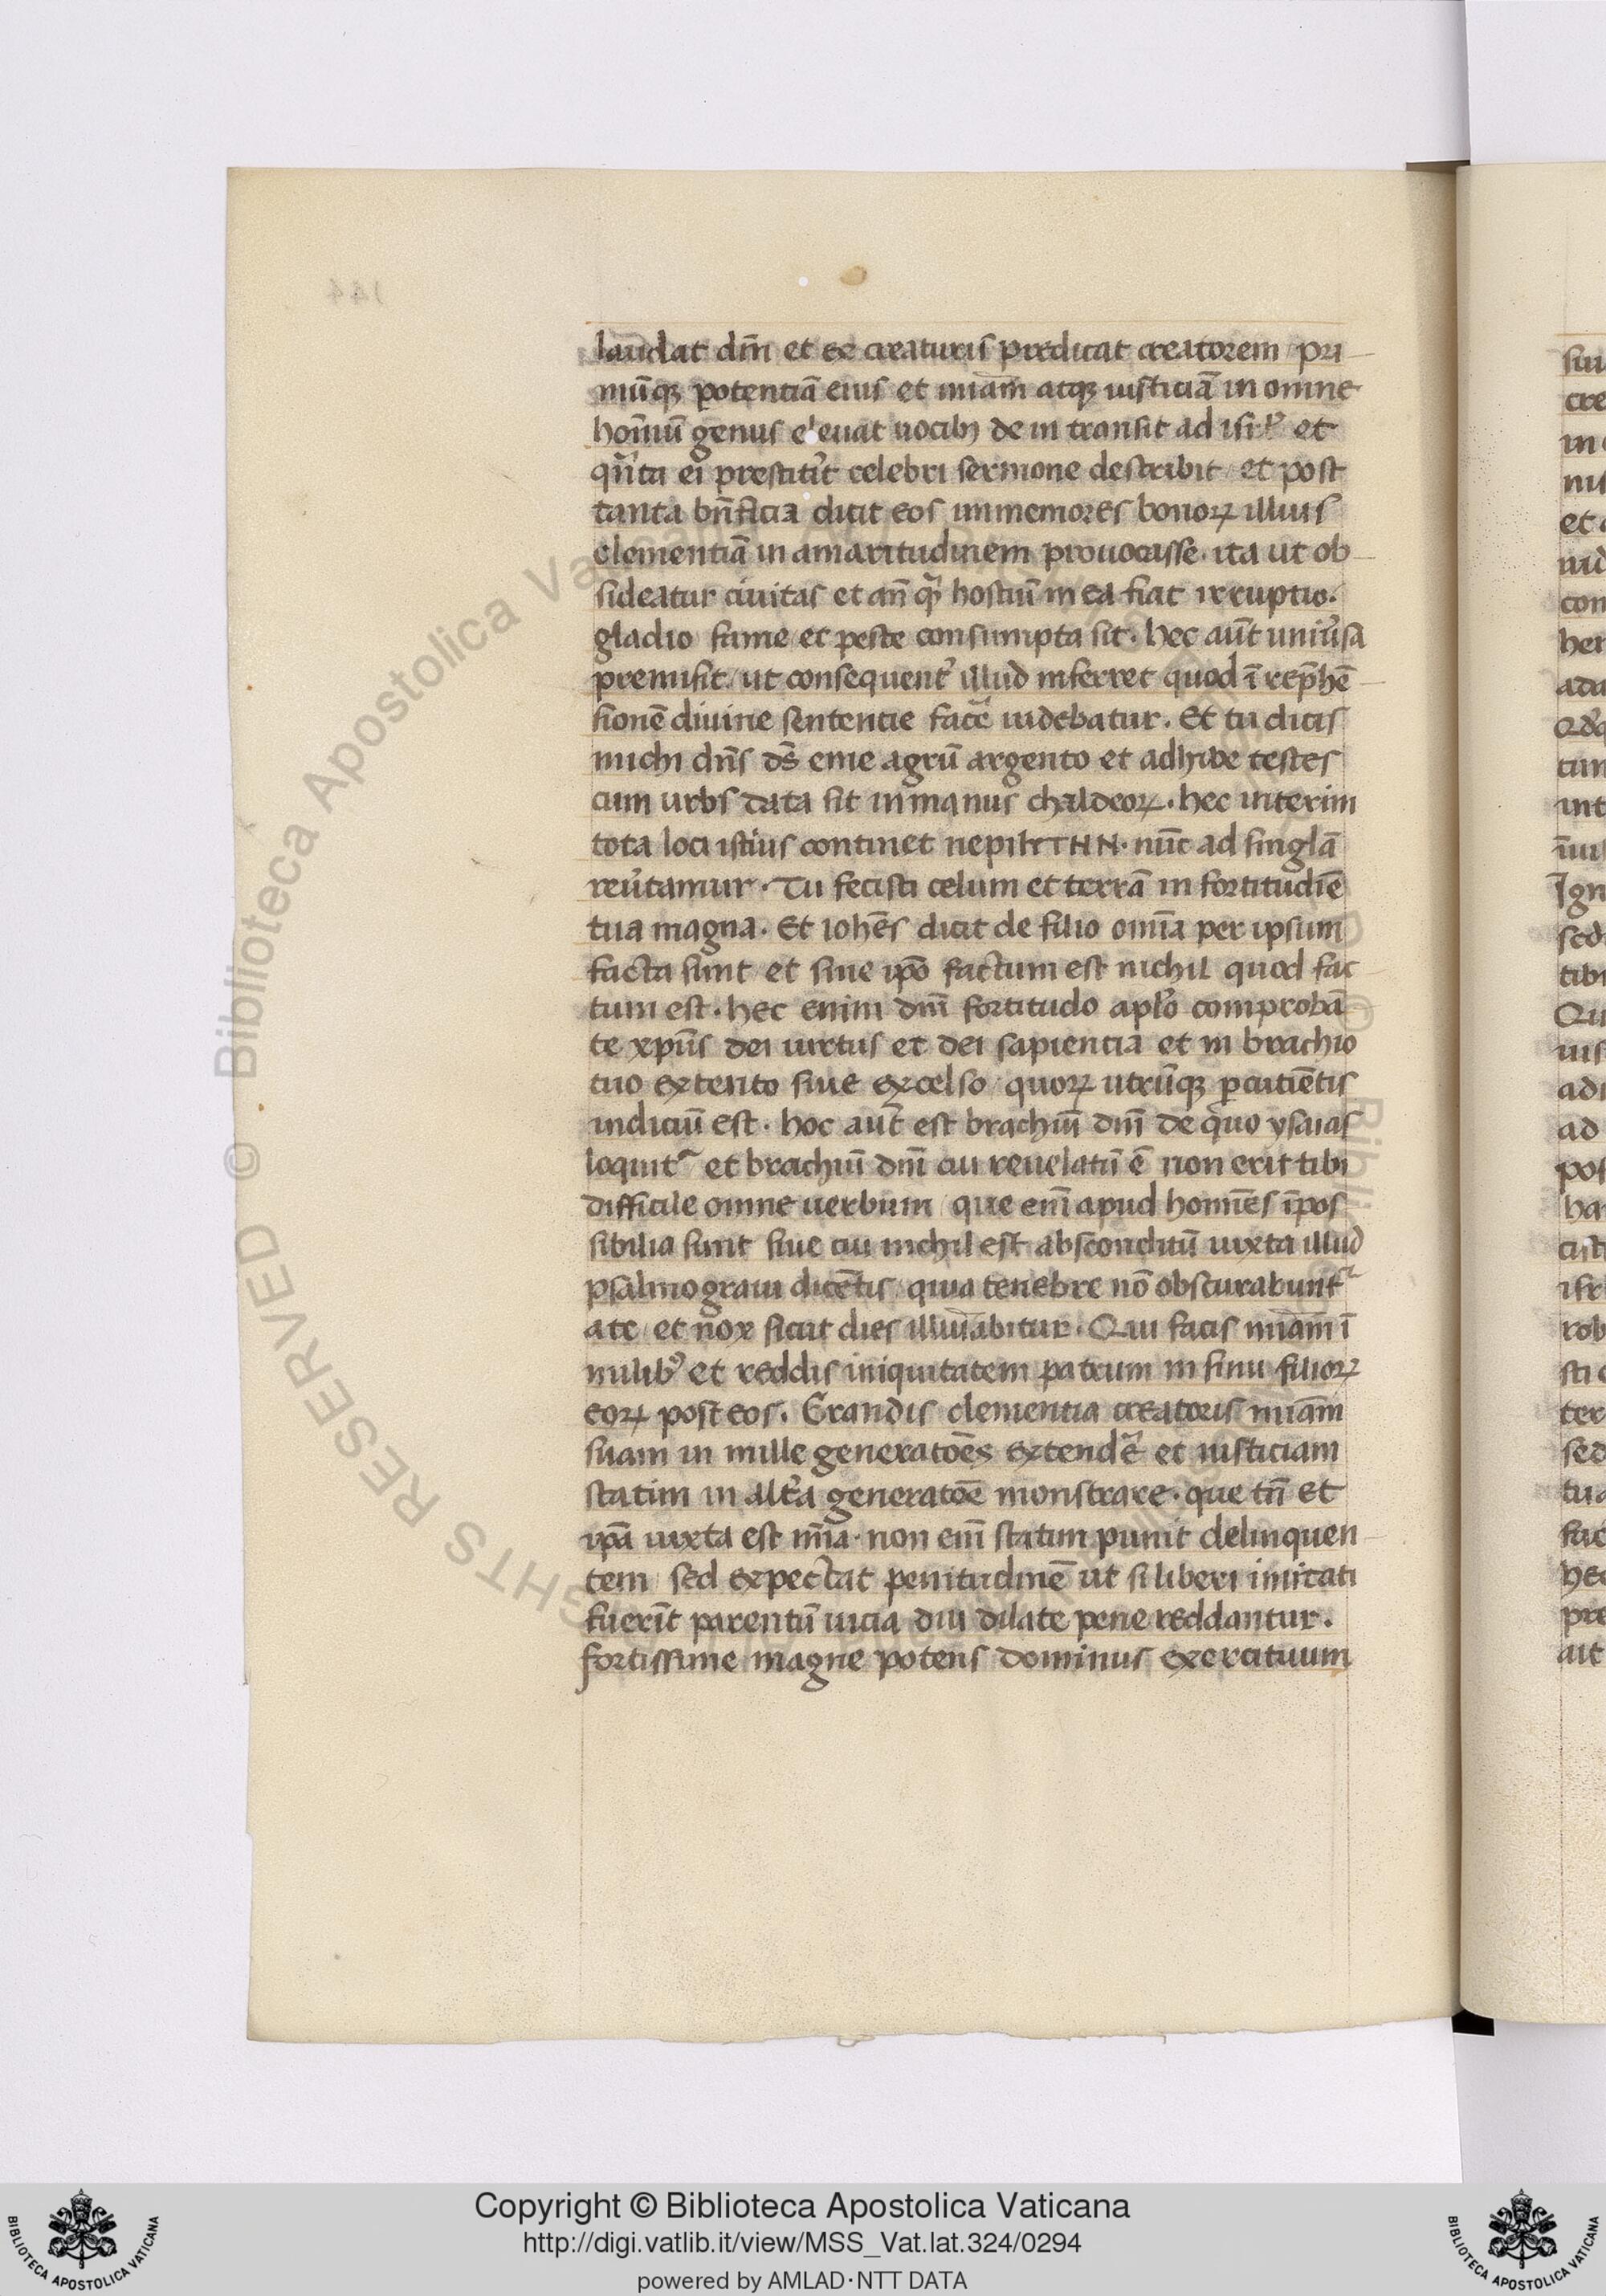 laudat dm̄ et ex creaturis predicat creatorem pri
mū̄qꝫ potentiā eius et miām atqꝫ iusticiā in omne
hoīmū genus eleuat uocibꝫ de in transit ad isrl̄ et
qn̄ta ei prestitit celebri sermone describit et post
tanta bn̄ficia dicit eos immemores bonoꝝ illius
clementiā in amaritudinem prouocasse. ita ut ob
sideatur ciuitas et an̄ qͣ hostiū in ea fiat irruptio.
gladio fame et peste consumpta sit. hec aūt uniūsa
premisit ut consequent̉ illud inferret quod ī rep̄hē
sionē diuine sententie facē uidebatur. Et tu dicis
michi dn̄s ds̄ eme agrū argento et adhibe testes
cum urbs data sit in manus chaldeoꝝ. hec interim
tota loci istius continet ΤΗΝ. nūc ad singlā
reūtamur. Tu fecisti celum et terrā in fortitudīe
tua magna. Et iohēs dicit de filio omīa per ipsum
facta sunt et sine ipō factum est nichil quod fac
tum est. hec enim dnī fortitudo aplō comprobā
te xpūs dei uirtus et dei sapiencia et in brachio
tuo extento siue excelso quoꝝ utrūqꝫ ꝑcutiētis
indiciū est. hoc aūt est brachiū dnī de quo ysaias
loquit᷑ et brachiū dnī cui reuelatū ē non erit tibi
difficile omne uerbum que enī apud homīes īpos
sibilia sunt siue cui nichil est absconditū iuxta illud
psalmo graui dicētis quia tenebre nō obscurabunt᷑
a te et nox sicut dies illuīabitur. Qui facis miām ī
milibꝰ et reddis iniquitatem patrum in sinu filioꝝ
eoꝝ post eos. Grandis clementia creatoris miām
suam in mille generatōes extendē et iusticiam
statim in alt̉a generatōe monstrare. que tn̄ et
ip̄a iuxta est mīa. non enī statim punit delinquen
tem sed expectat penitudinē ut si liberi imitati
fuerīt parentū uicia diu dilate pene reddantur.
fortissime magne potens dominus exercituum
Copyright © Biblioteca Apostolica Vaticana
http://digi.vatlib.it/view/MSS_Vat.lat.324/0294
powered by AMLAD·NTT DATA